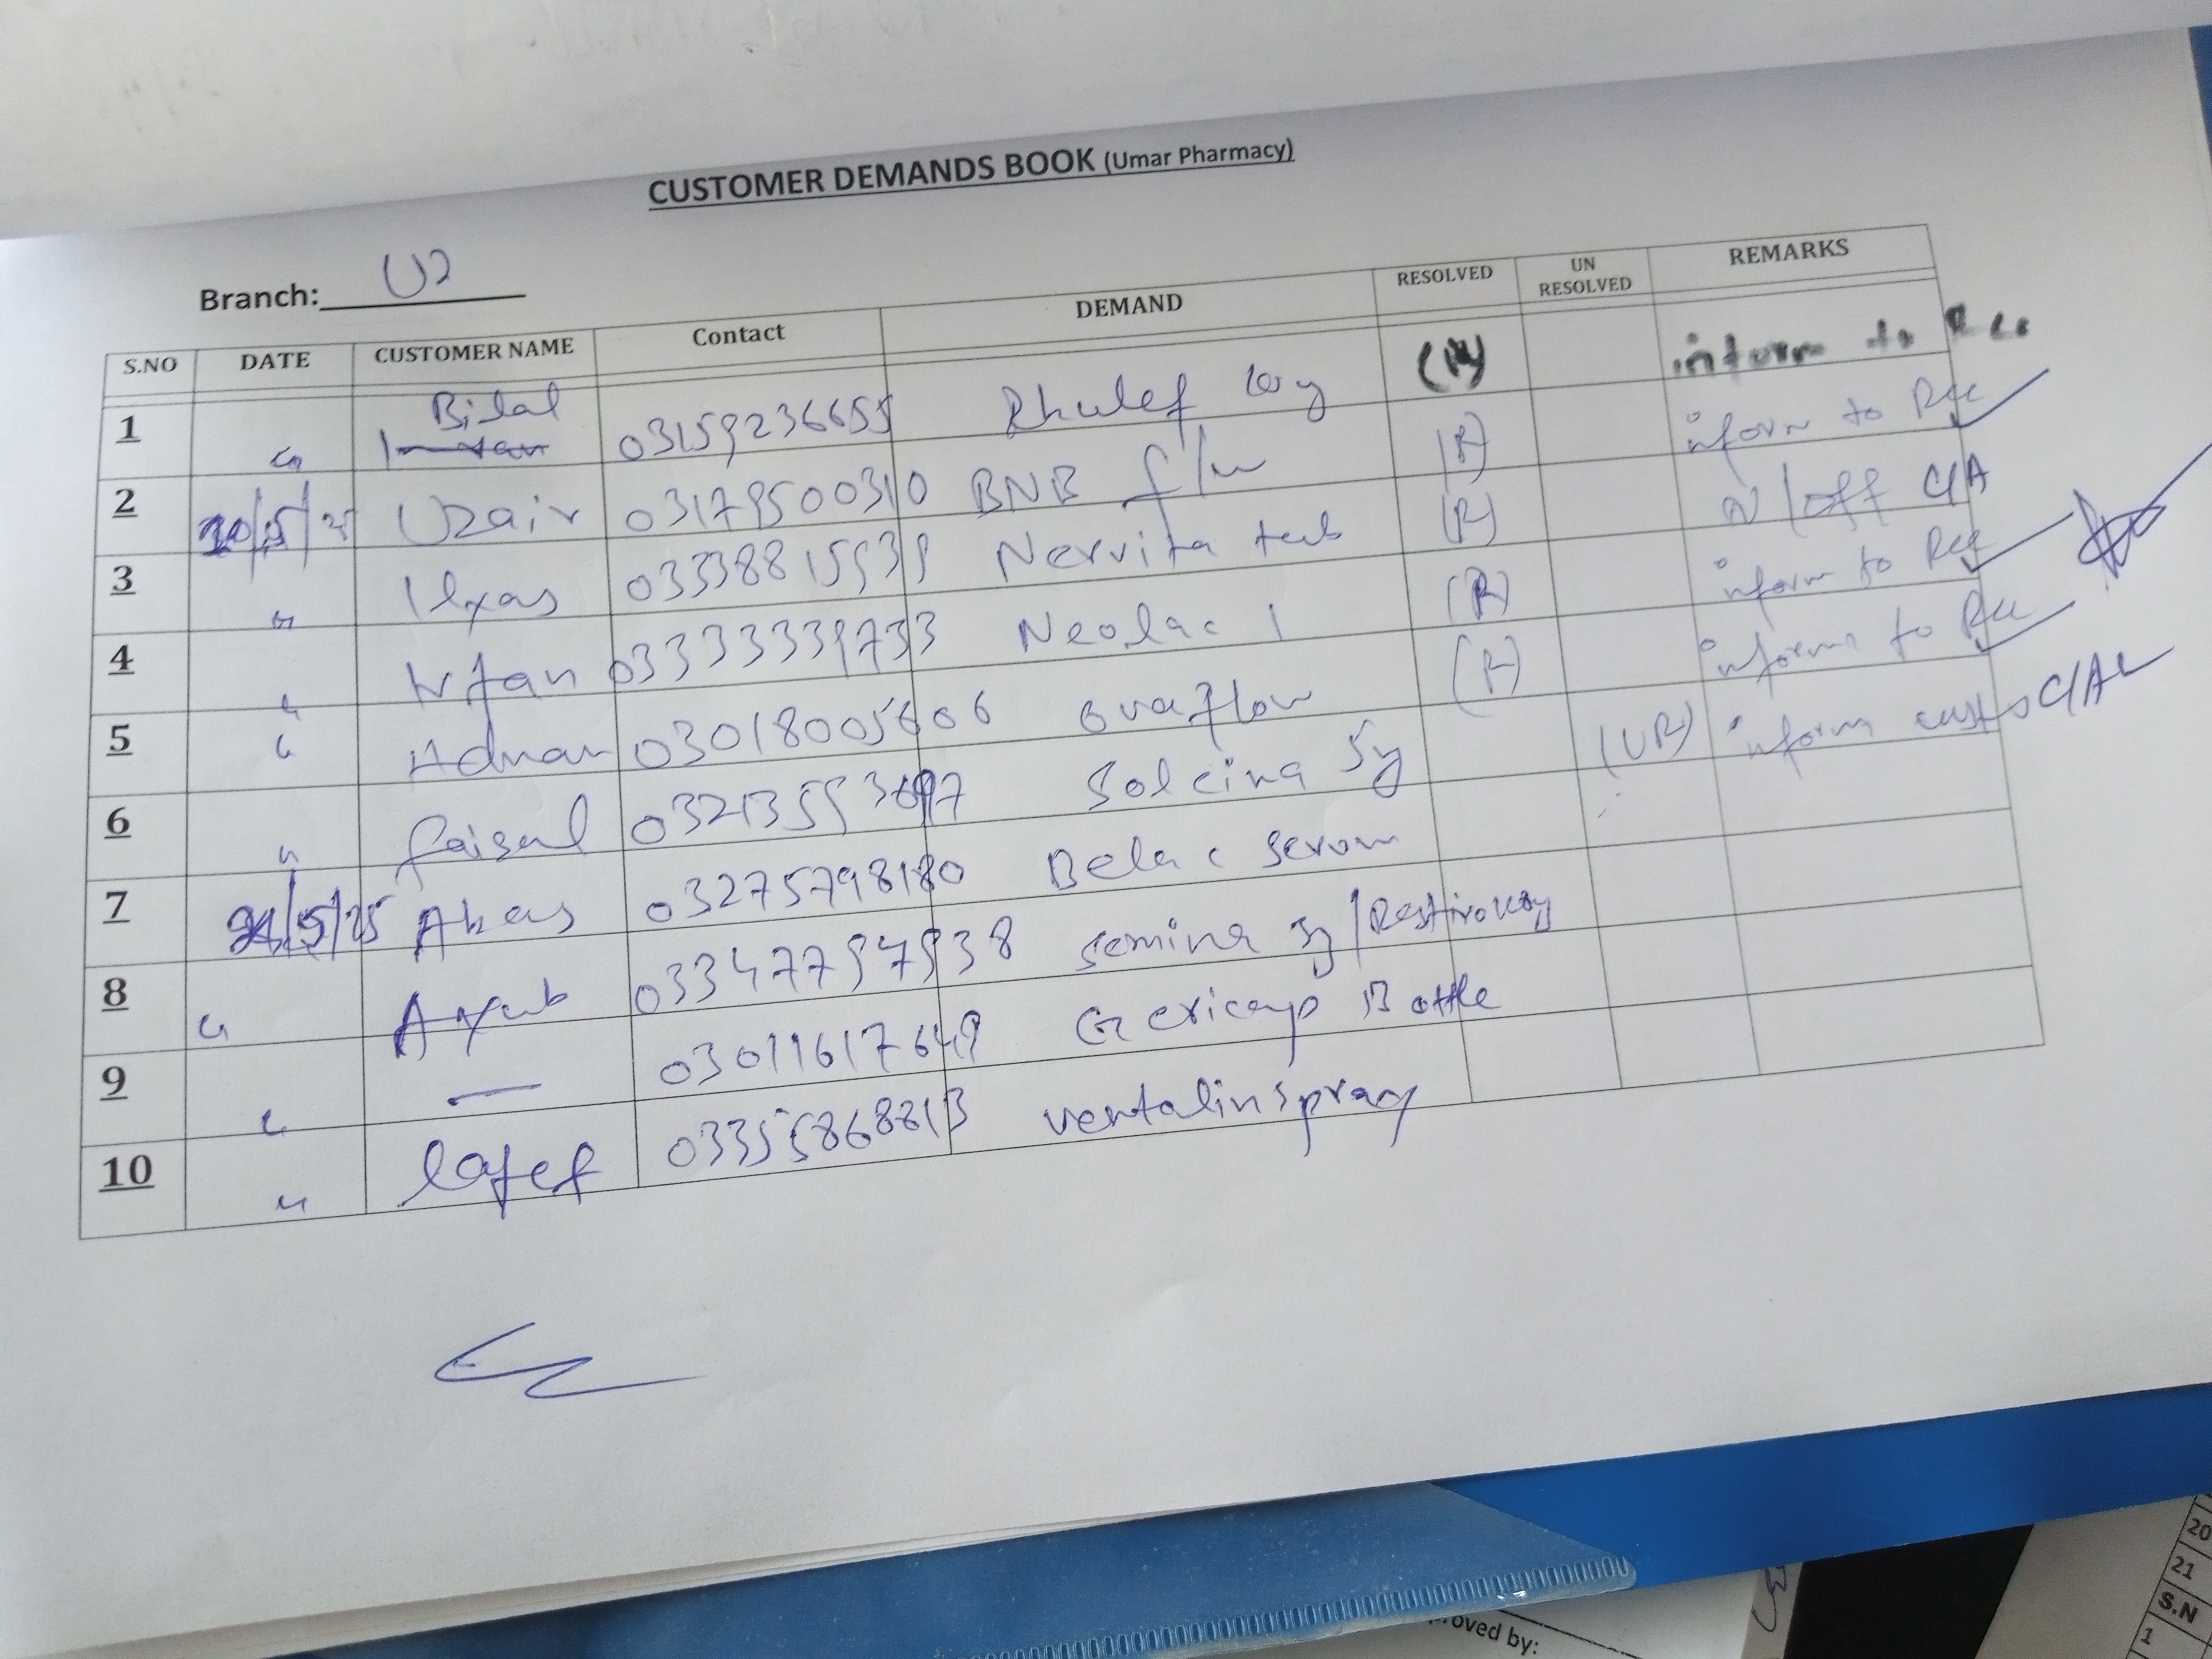 CUSTOMER DEMANDS BOOK (Umar Pharmacy)
Branch: U2
S.NO DATE CUSTOMER NAME Contact DEMAND RESOLVED UN RESOLVED REMARKS
1 " Bilal 03159236655 Rhulef (R) inform to Rec
2 20/5/25 Uzair 03179500310 BNB f/w (R) inform to Rec
3 " Ilyas 03338815939 Nervita tab (R) N/off C/A
4 " Irfan 03333339733 Neolac 1 (R) inform to Rec
5 " Adnan 03018005606 ovaflow (R) inform to Rec
6 " faisal Solcina Sy (UR) inform C/A
7 21/5/25 Abas 03275798180 Belac serum
8 " Ayub 03347797938 Semina Sy/
9 " — 03011617649 Gericap Bottle
10 " 03355868813 ventalin spray
roved by:
20
21
S.N
1